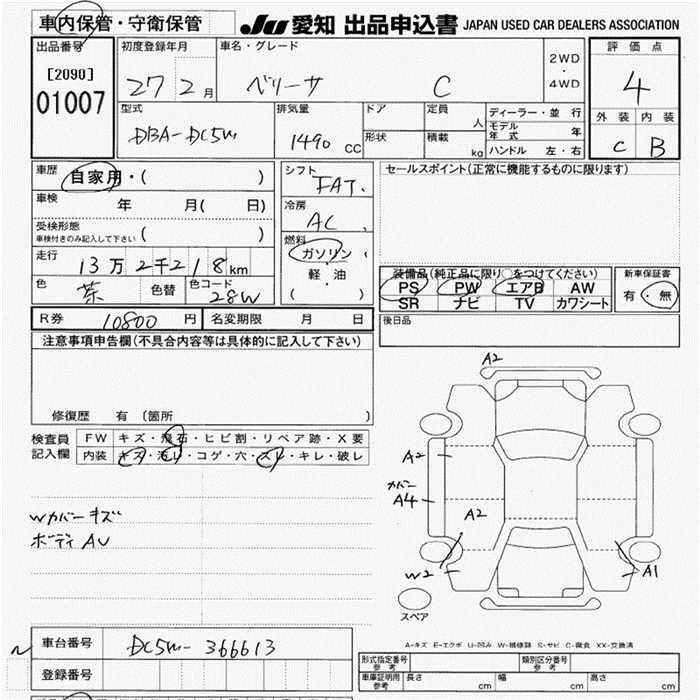 車内保管・守衛保管
JU 愛知 出品申込書 JAPAN USED CAR DEALERS ASSOCIATION
出品番号
[2090]
01007
初度登録年月
27 2月
車名・グレード
ベリーサ C
2WD
・
4WD
評価点
4
外装 内装
C B
型式
DBA-DC5W
排気量
1490 CC
ドア
形状
定員
人
積載
kg
ディーラー・並行
モデル年式 年
ハンドル 左・右
車歴
自家用・( )
車検
年 月( 日)
受検形態
車検付きのみ記入して下さい ( )
走行
13万2千218km
色
茶
色替
色コード
28W
シフト
FAT.
冷房
AC.
燃料
ガソリン
軽・油
( )
セールスポイント(正常に機能するものに限ります)
装備品(純正品に限り○をつけてください)
PS PW エアB AW
SR ナビ TV カワシート
新車保証書
有・無
R券 10800円 名変期限 月 日
後日品
注意事項申告欄(不具合内容等は具体的に記入して下さい)
修復歴 有 〔箇所 〕
検査員
記入欄
FW キズ・飛石・ヒビ割・リペア跡・X要
内装 キズ・汚レ・コゲ・穴・スレ・キレ・破レ
Wカバーキズ
ボディAU
A2
A2
カバー
A4
A2
W2
A1
スペア
A-キズ E-エクボ U-凹み W-補修跡 S-サビ C-腐食 XX-交換済
車台番号 DC5W-366613
登録番号
形式指定番号
参考
類別区分番号
参考
車庫証明用
参考
長さ cm 幅 cm 高さ cm